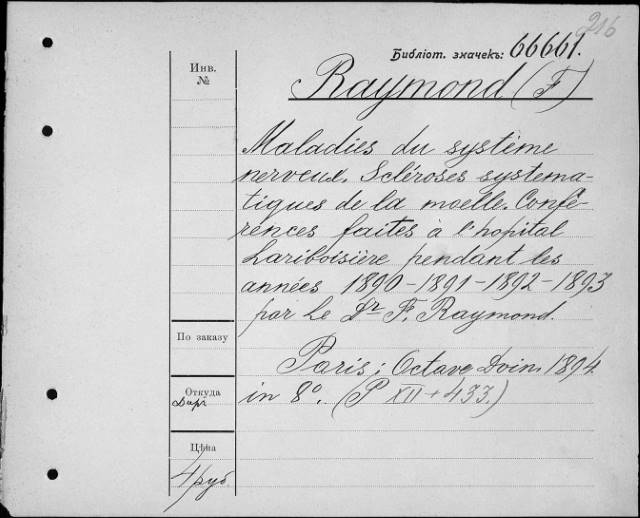 216
Библіот. значекъ: 66661.
Инв.
№
Raymond (F)
Maladies du système
nerveux. Scléroses systema-
tiques de la moelle. Confé-
rences faites à l'hopital
Lariboisière pendant les
années 1890-1891-1892-1893
par Le Dr F. Raymond.
По заказу
Paris; Octave Doin. 1894
in 8°. (P XII + 433.)
Откуда
Даръ
Цѣна
4 руб.